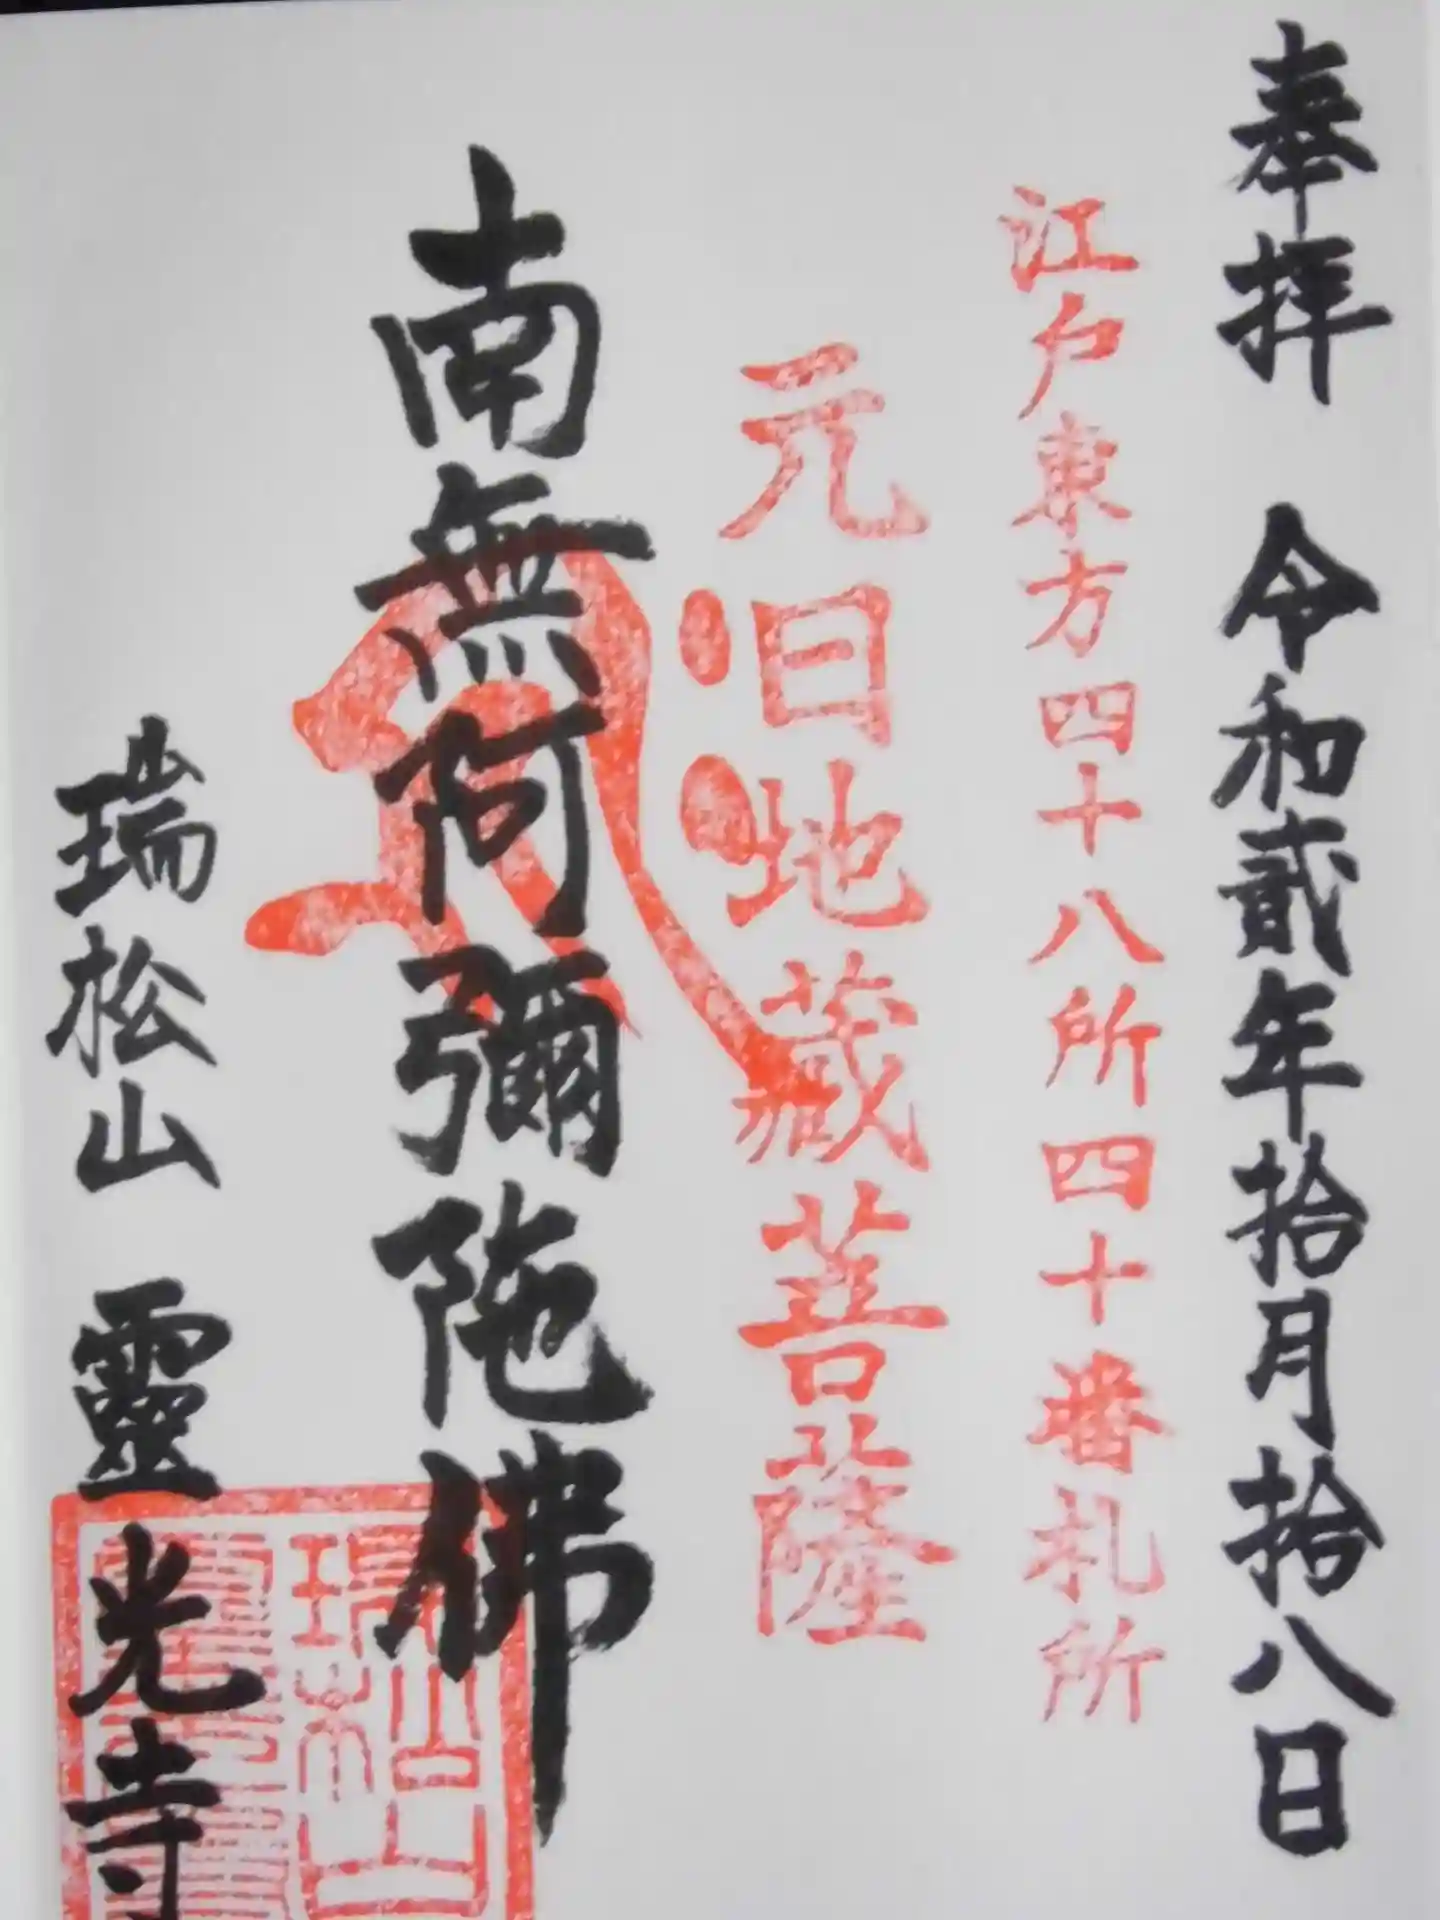 奉拝 令和貳年拾月拾八日
江戸東方四十八所四十番札所
元日地蔵菩薩
南無阿彌陀佛
瑞松山 靈光寺
瑞松山